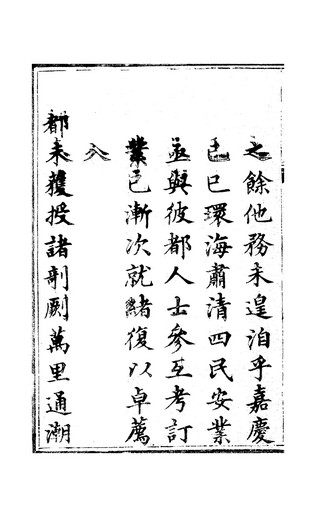 之餘他務未遑洎乎嘉慶
己巳環海肅清四民安業
亟與彼都人士參互考訂
業已漸次就緒復以卓薦
入
都未獲授諸剞劂萬里通潮